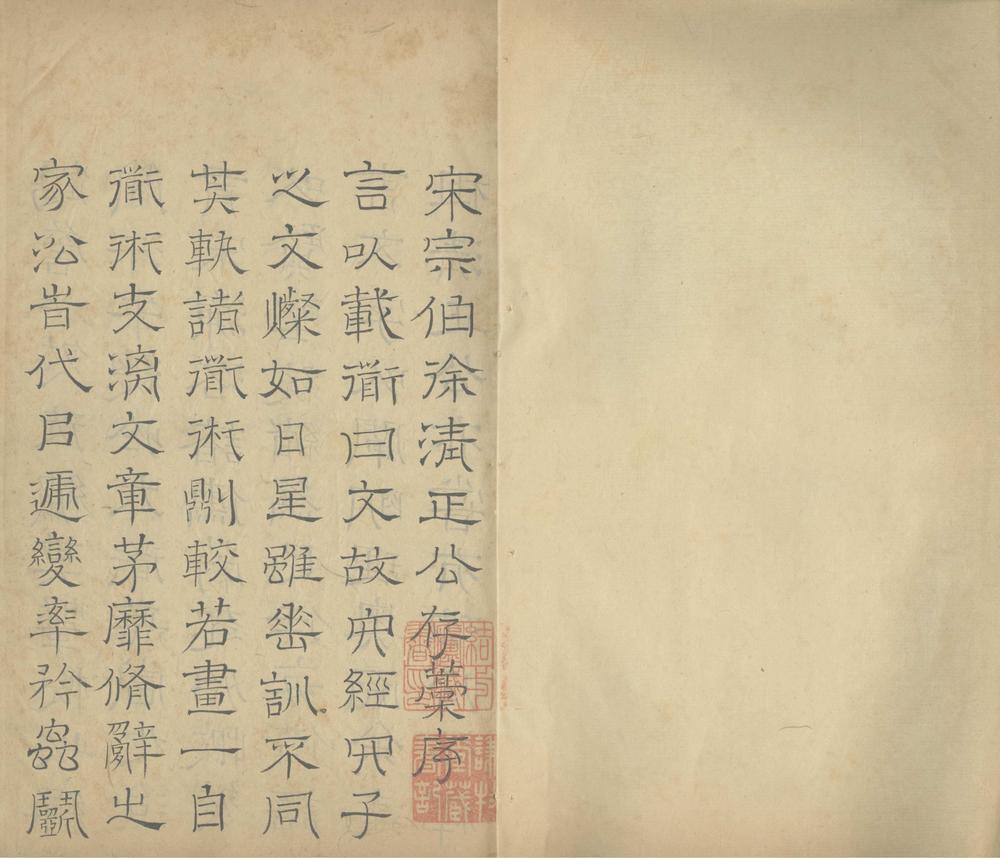 宋宗伯徐清正公存藳序
言以載衜曰文故六經六子
之文燦如日星雖垂訓不同
其軌諸衜術則較若畫一自
衜術支漓文章茅靡脩辭之
家㳂旹代㠯遞變率矜蟲鬭